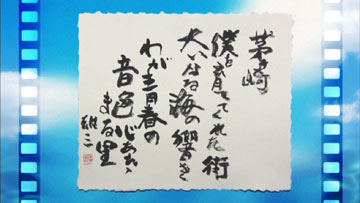 茅ヶ崎
僕を育ててくれた街
大いなる海の響き
わが青春の
音色じあふ
まる里
雄三